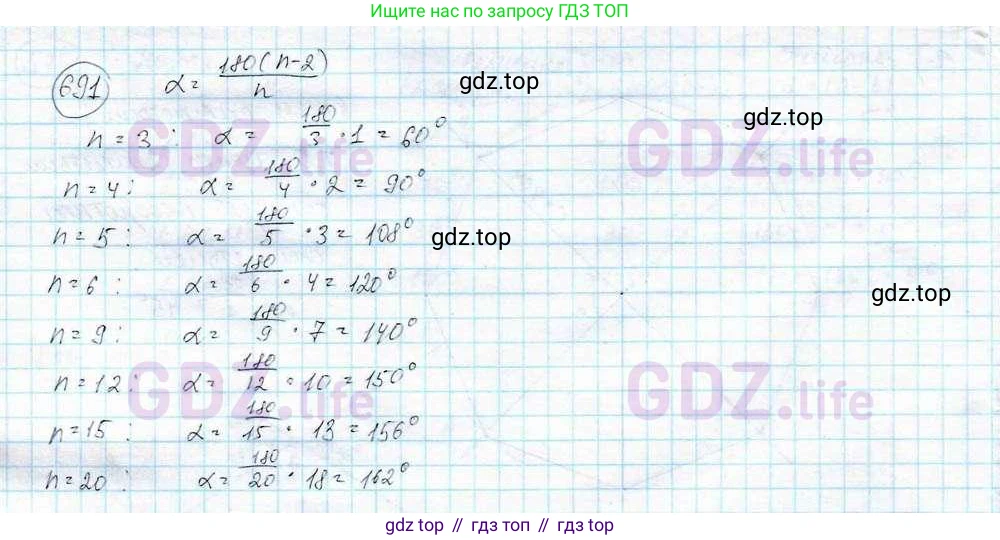 Ищите нас по запросу ГДЗ ТОП
691 α = 180(n-2)/n gdz.top
gdz.top
n = 3 : α = 180/3 · 1 = 60°
GDZ.life GDZ.life
n = 4 : α = 180/4 · 2 = 90°
n = 5 : α = 180/5 · 3 = 108° gdz.top
n = 6 : α = 180/6 · 4 = 120°
gdz.top
n = 9 : α = 180/9 · 7 = 140°
n = 12 : α = 180/12 · 10 = 150°
GDZ.life GDZ.life
n = 15 : α = 180/15 · 13 = 156°
n = 20 : α = 180/20 · 18 = 162°
gdz top // гдз топ // gdz top